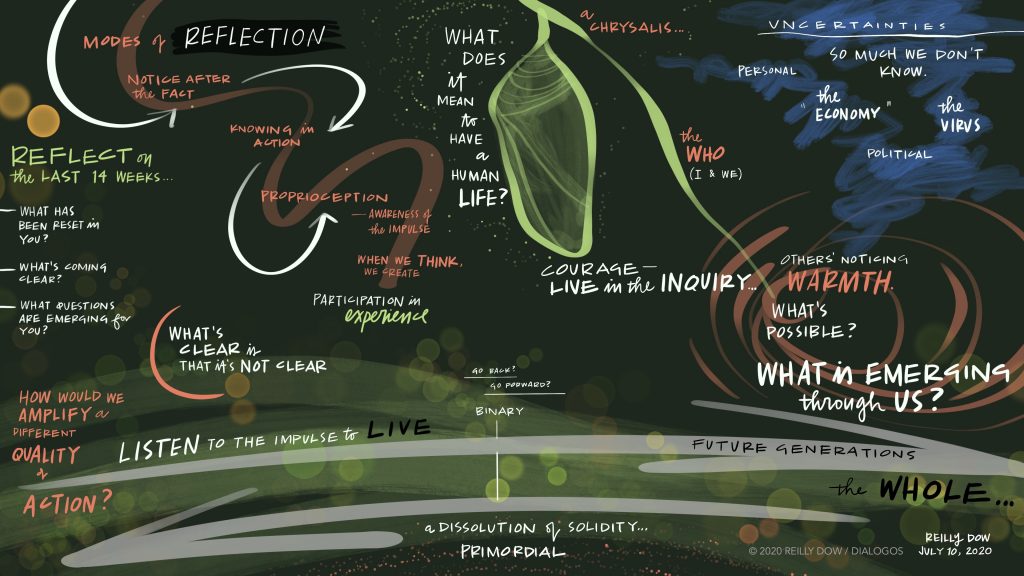 MODES of REFLECTION
NOTICE AFTER
the FACT
KNOWING in
ACTION
PROPRIOCEPTION
— AWARENESS of
the IMPULSE
WHEN WE THINK,
WE CREATE
PARTICIPATION in
experience
REFLECT on
the LAST 14 WEEKS...
— WHAT HAS
BEEN RESET in
YOU?
— WHAT'S COMING
CLEAR?
— WHAT QUESTIONS
ARE EMERGING for
YOU?
WHAT'S
CLEAR is
THAT it's NOT CLEAR
HOW WOULD WE
AMPLIFY a
DIFFERENT
QUALITY
of
ACTION?
WHAT
DOES
it
MEAN
to
HAVE
a
HUMAN
LIFE?
a
CHRYSALIS...
the
WHO
(I & WE)
COURAGE —
LIVE in the INQUIRY...
UNCERTAINTIES
SO MUCH WE DON'T
KNOW.
PERSONAL
"the
ECONOMY"
the
VIRUS
POLITICAL
OTHERS' NOTICING
WARMTH.
WHAT'S
POSSIBLE?
WHAT is EMERGING
through US?
GO BACK?
GO FORWARD?
BINARY
LISTEN TO THE IMPULSE to LIVE
FUTURE GENERATIONS
the WHOLE...
a DISSOLUTION of SOLIDITY...
PRIMORDIAL
REILLY DOW
JULY 10, 2020
© 2020 REILLY DOW / DIALOGOS